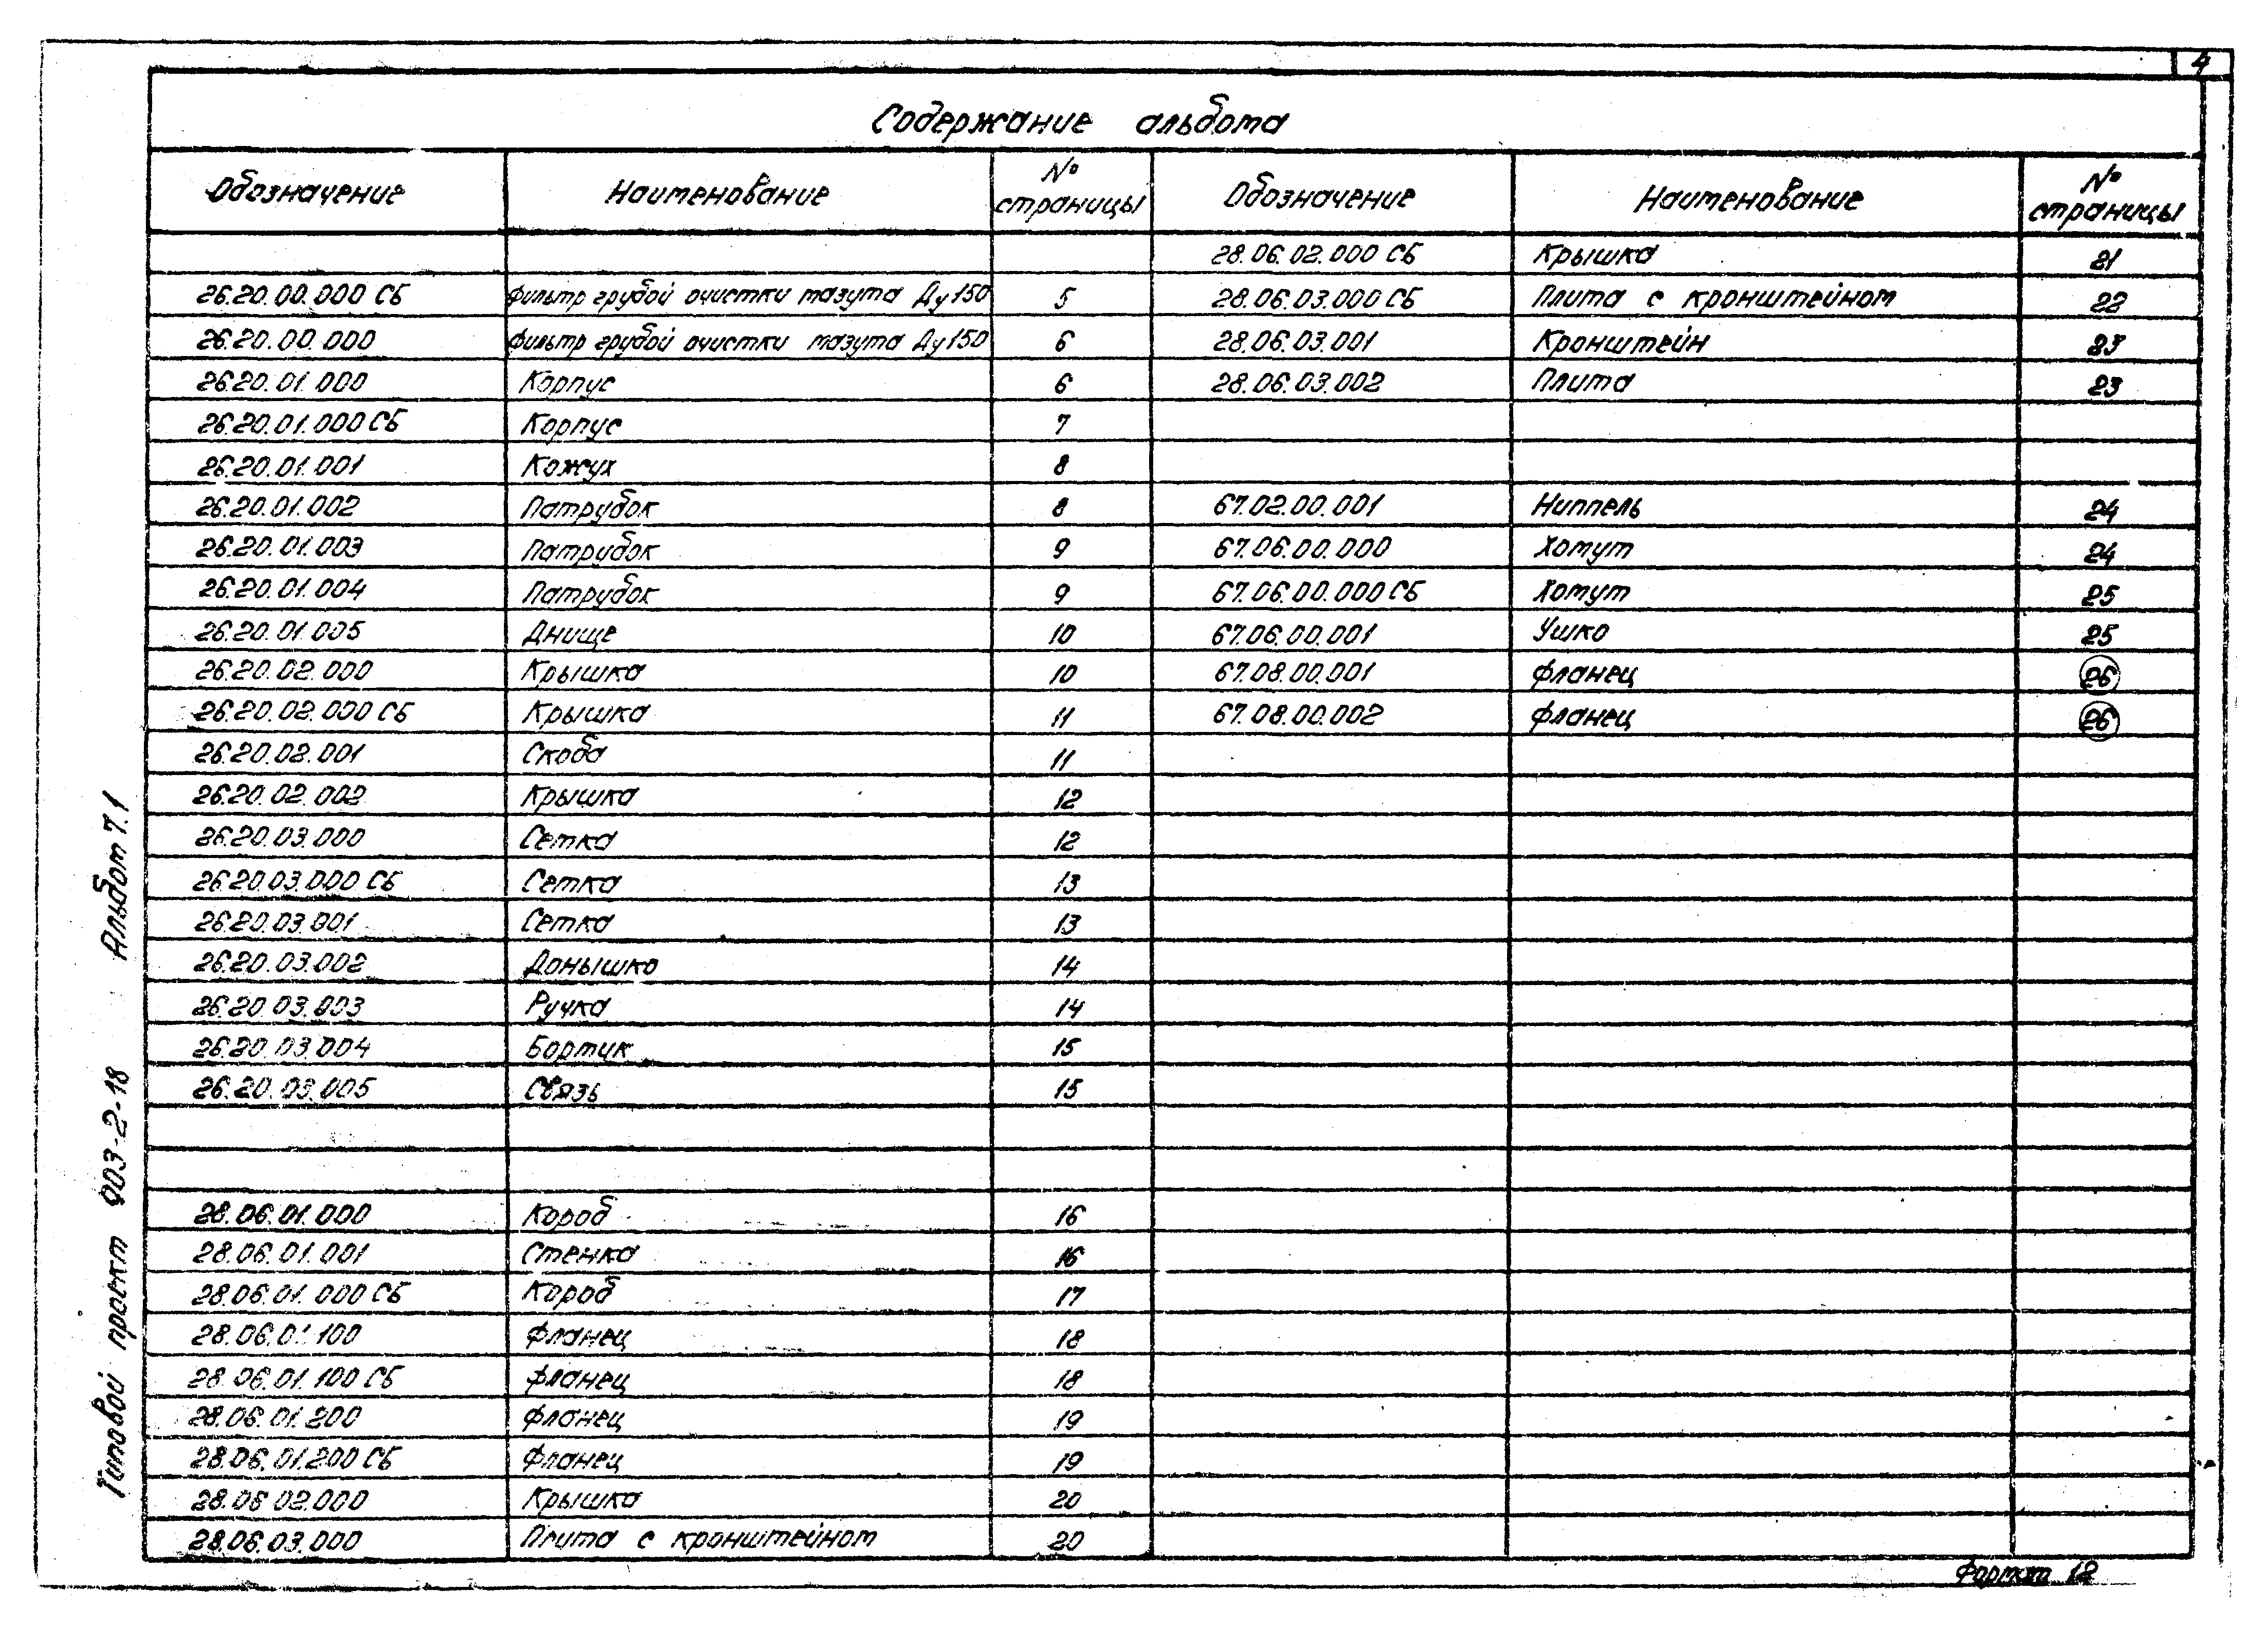 4
Содержание альбома
Обозначение Наименование № страницы Обозначение Наименование № страницы
28.06.02.000 СБ Крышка 21
26.20.00.000 СБ Фильтр грубой очистки мазута Ду150 5 28.06.03.000 СБ Плита с кронштейном 22
26.20.00.000 Фильтр грубой очистки мазута Ду150 6 28.06.03.001 Кронштейн 23
26.20.01.000 Корпус 6 28.06.03.002 Плита 23
26.20.01.000 СБ Корпус 7
26.20.01.001 Кожух 8
26.20.01.002 Патрубок 8 67.02.00.001 Ниппель 24
26.20.01.003 Патрубок 9 67.06.00.000 Хомут 24
26.20.01.004 Патрубок 9 67.06.00.000 СБ Хомут 25
26.20.01.005 Днище 10 67.06.00.001 Ушко 25
26.20.02.000 Крышка 10 67.08.00.001 Фланец 26
26.20.02.000 СБ Крышка 11 67.08.00.002 Фланец 26
26.20.02.001 Скоба 11
26.20.02.002 Крышка 12
26.20.03.000 Сетка 12
26.20.03.000 СБ Сетка 13
26.20.03.001 Сетка 13
26.20.03.002 Донышко 14
26.20.03.003 Ручка 14
26.20.03.004 Бортик 15
26.20.03.005 Связь 15
28.06.01.000 Короб 16
28.06.01.001 Стенка 16
28.06.01.000 СБ Короб 17
28.06.01.100 Фланец 18
28.06.01.100 СБ Фланец 18
28.06.01.200 Фланец 19
28.06.01.200 СБ Фланец 19
28.06.02.000 Крышка 20
28.06.03.000 Плита с кронштейном 20
Типовой проект 903-2-18 Альбом 7.1
Формат 12